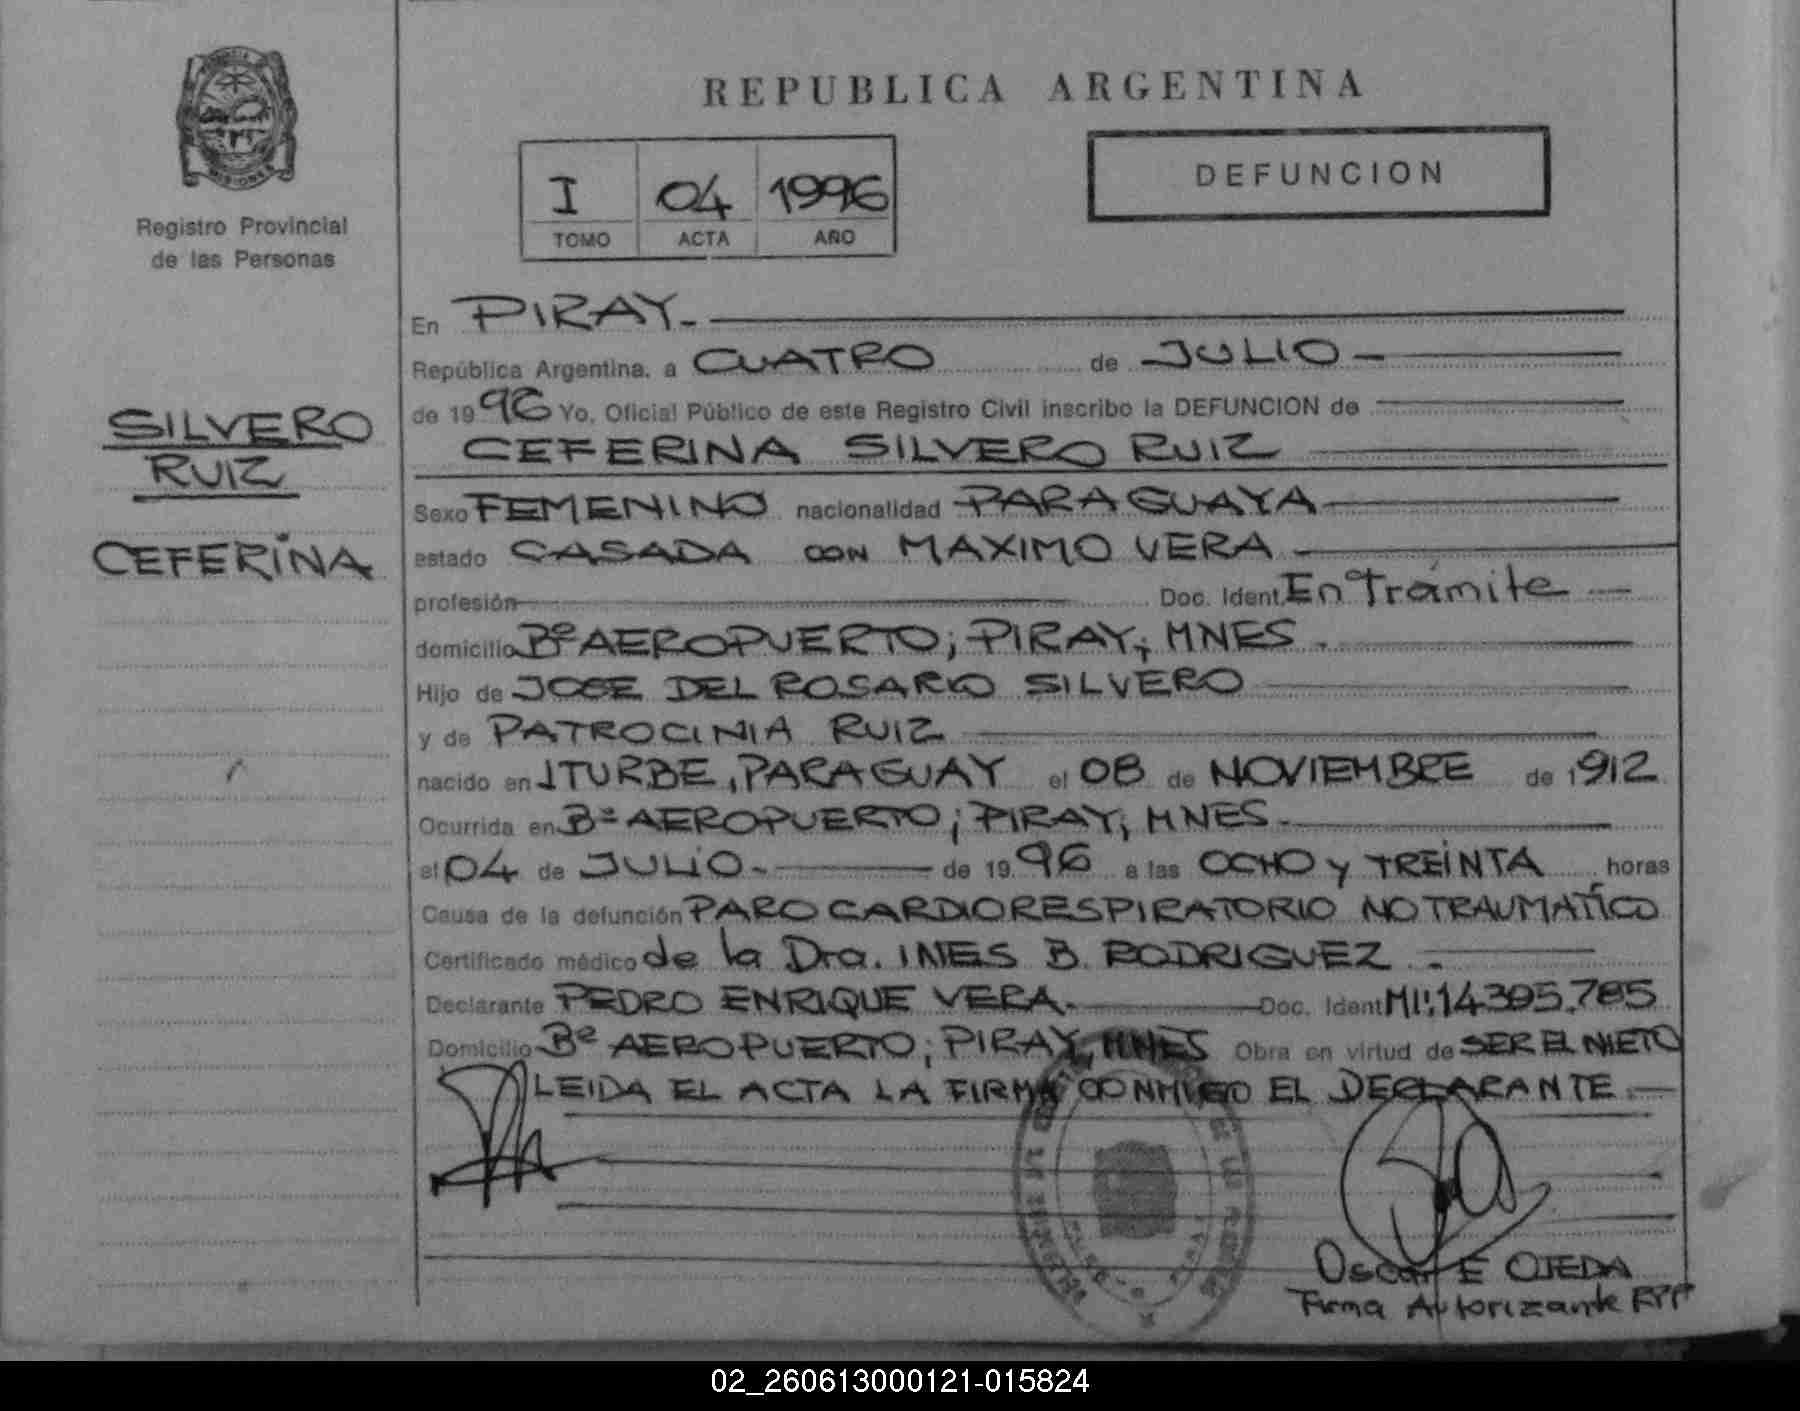 MISIONES
Registro Provincial
de las Personas
SILVERO
RUIZ
CEFERINA
REPUBLICA ARGENTINA
I 04 1996
TOMO ACTA AÑO
DEFUNCION
En PIRAY.-
República Argentina, a CUATRO de JULIO -
de 1996 Yo, Oficial Público de este Registro Civil inscribo la DEFUNCION de
CEFERINA SILVERO RUIZ
Sexo FEMENINO nacionalidad PARAGUAYA
estado CASADA CON MAXIMO VERA -
profesión Doc. Ident. En Trámite -
domicilio Bº AEROPUERTO; PIRAY; MNES.
Hijo de JOSE DEL ROSARIO SILVERO
y de PATROCINIA RUIZ
nacido en ITURBE, PARAGUAY el 08 de NOVIEMBRE de 1912
Ocurrida en Bº AEROPUERTO; PIRAY; MNES.
el 04 de JULIO.- de 1996 a las OCHO y TREINTA horas
Causa de la defunción PARO CARDIORESPIRATORIO NO TRAUMATICO
Certificado médico de la Dra. INES B. RODRIGUEZ .
Declarante PEDRO ENRIQUE VERA. Doc. Ident MI:14.395.785
Domicilio Bº AEROPUERTO; PIRAY, MNES Obra en virtud de SER EL NIETO
LEIDA EL ACTA LA FIRMA CONMIGO EL DECLARANTE -
Oscar E OJEDA
Firma Autorizante RPP
02_260613000121-015824